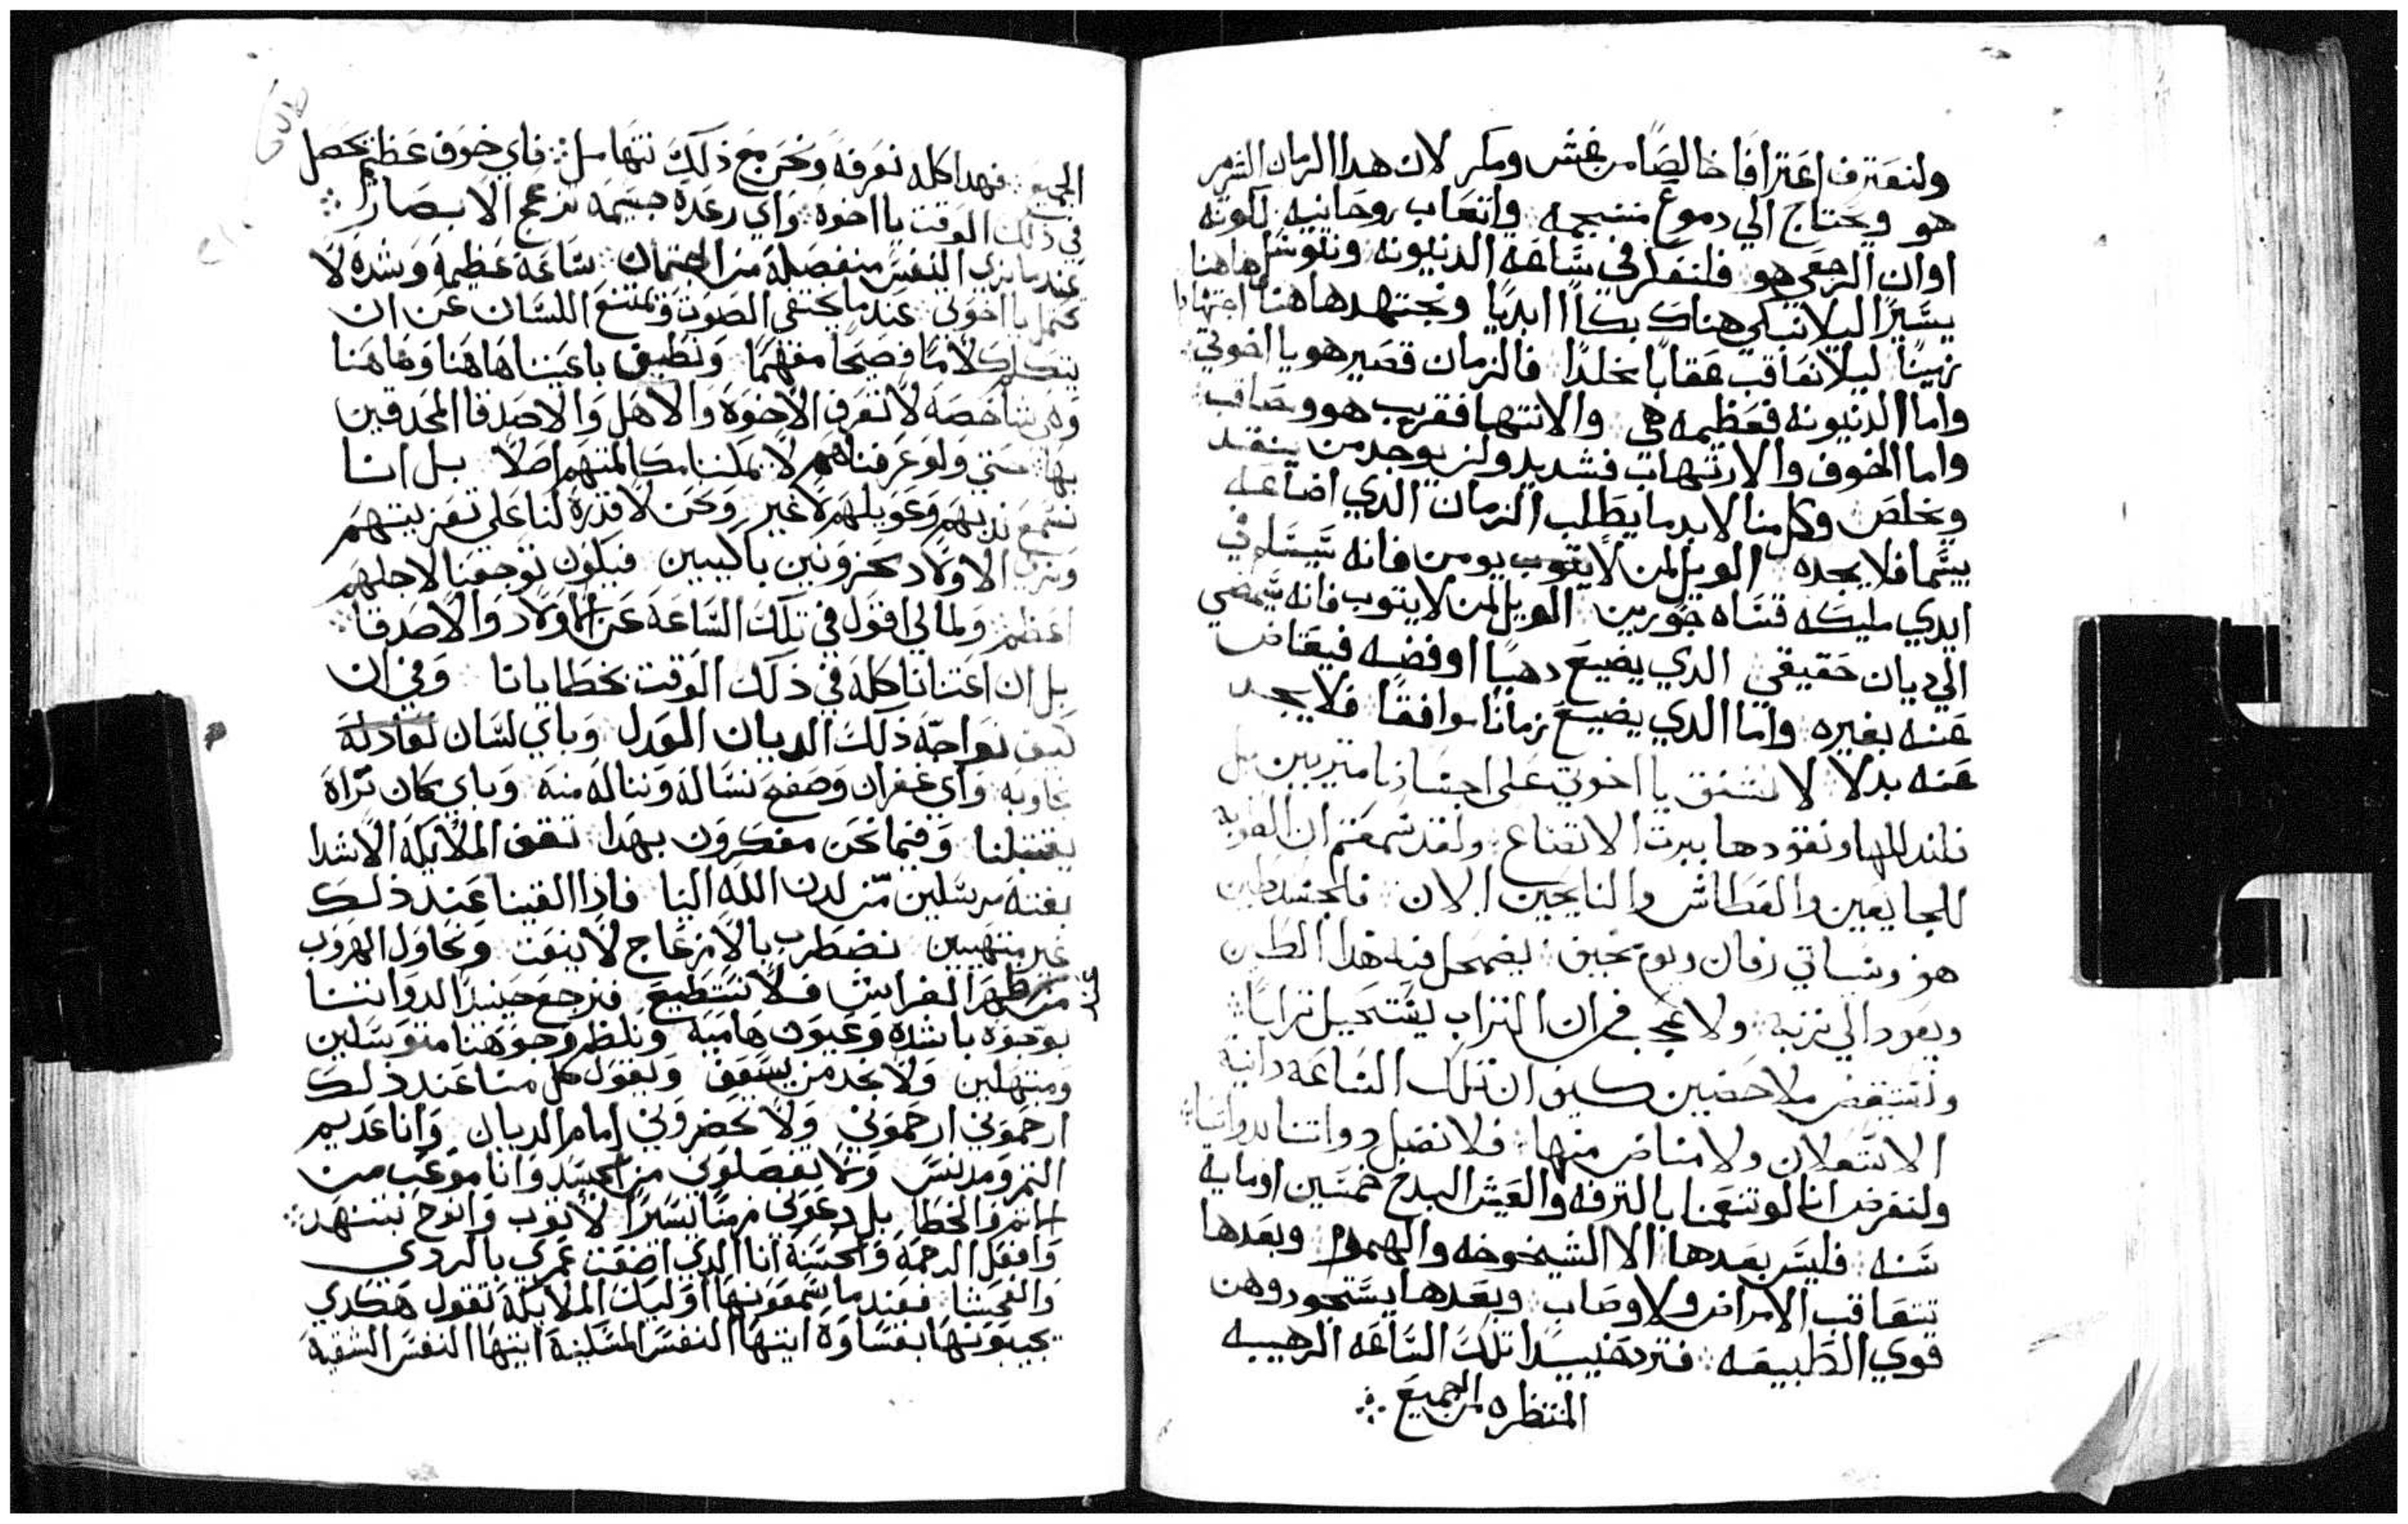 ولنعترف اعترافا خالصًا من غش ومكر لان هدا الزمان الشرير
هو ويحتاج الي دموع منسجمه واتعاب روحانيه لكونه
اوان الرجعي هو فلنفكر في سَّاعة الدنيونه ونتوسَّل هاهنا
يسَّيرًا ليلا نبكي هناك بكاًا ابديًا ونجتهد هاهنا اجتهادا
زهينًا ليلا نعاقب عقابًا مخلدًا فالزمان قصير هو يا اخوتي
واما الدنيونه فعظيمه هي والانتها فقريب هو وصاقب
واما الخوف والارتهاب فشديد ولن يوجد من ينقد
ويخلص وكل منا لابد ما يطلب الزمان الدي اضاعه
بيتما فلا يجده الويل لمن لا يتوب يومن فانه سَّيسَّلم في
ايدي مليكه قسَاه جورين الويل لمن لا يتوب فانه سَّيمضي
الي ديان حقيقي الدي يضيع دهبًا او فضه فيعتاض
عنه بغيره واما الدي يضيع زمانًا موافقًا فلا يجد
عنه بدلا لا نشفق يا اخوتي علي اجسَادنا متربيين بل
فلندللها ونقودها بيرت الاتضاع ولقد سَّمعتم ان الطوبه
للجايعين والعطاش والنايحين الان فالجسَد طين
هو وسَياتي زمان ويوم يحيق يضمحل فيه هدا الطين
ويعود الي تربه ولا عجب في ان التراب يسَّتحيل ترابًا
ولنستيقض ملاحضين كيف ان تلك السَّاعه دانية
الاشتعلان ولا مناص منها فلا نضل دواتنا بدواتنا
ولنفرض اننا لو تنعمنا بالترفه والعيش البدخ خمسَّين او مايه
سَّنه فليسَّ بعدها الا الشيخوخه والهموم وبعدها
تتعاقب الامراض والاوصاب وبعدها يسَّتحود وهن
قوي الطبيعه فترد حينيدا تلك السَّاعه الرهيبه
المنتظره لمن الجميع
الجميع فهدا كله نعرفه ونحن مع ذلك نتهاسل فاي خوف عظيم يحصل
في ذلك الوقت يا اخوة واي رعدة جسيمه تزعج الابصار
عندما نري النفسَّ منفصلة من الجتمان سَاعة عظيمة وشدة لا
تحتمل يا اخوتي عندما يختفي الصوت ويمتنع اللسَّان عن ان
يتكلم كلامًا فصيحًا مفهمًا ونطيف باعيننا هاهنا وهاهنا
وهي شاخصه لا نعرف الاخوة والاهل والاصدقا المحدقين
بها حتي ولو عرفناهم لا يمكننا مكالمتهم اصلا بل اننا
نسَّمع ندبهم وعويلهم لا غير ونحن لا قدرة لنا علي تعزيتهم
ونري الاولاد محزونين باكيين فيكون توجعنا لاجلهم
اعظم ولما لي اقول في تلك السَّاعة عن الاولاد والاصدقا
بل ان اعتنانا كله في ذلك الوقت بخطايانا وفي ان
كيف نواجه ذلك الديان العدل وباي لسَّان نعادله
نجاوبه واي غفران وصفح نسَاله ونناله منه وباي مكان نراه
يقتبلنا وفيما نحن مفكرون بهدا تقف الملايكة الاشدا
بغتة مرسَّلين من لدن الله الينا فادا القينا عند ذلك
غير متهيبين نضطرب بالانزعاج لا ينعت ونحاول الهروب
من ظهر الفراش فلا نسَتطيع فنرجع حينيدا لدواتنا
بوجوه باشدة وعيون هامية ونلطم وجوهنا متوسَّلين
ومبتهلين ولا نجد من يسَعف ويقول كل منا عند ذلك
ارحموني ارحموني ولا تحضروني امام الديان وانا عديم
التمر ومدنسَّ ولا تفصلوني من الجسَد وانا موعب من
الجرم والخطا بل دعوني زمنًا يسَّيرًا لاتوب وانوح بتنهد
وافعل الرحمة والحسَنة انا الدي اضعت عمري بالردي
والفحشا فعندما يسَّمعونها اوليك الملايكة تقول هكدي
يجيبونها بقسَاوة ايتها النفسَّ المسَّكينة ايتها النفسَّ الشقية
عند